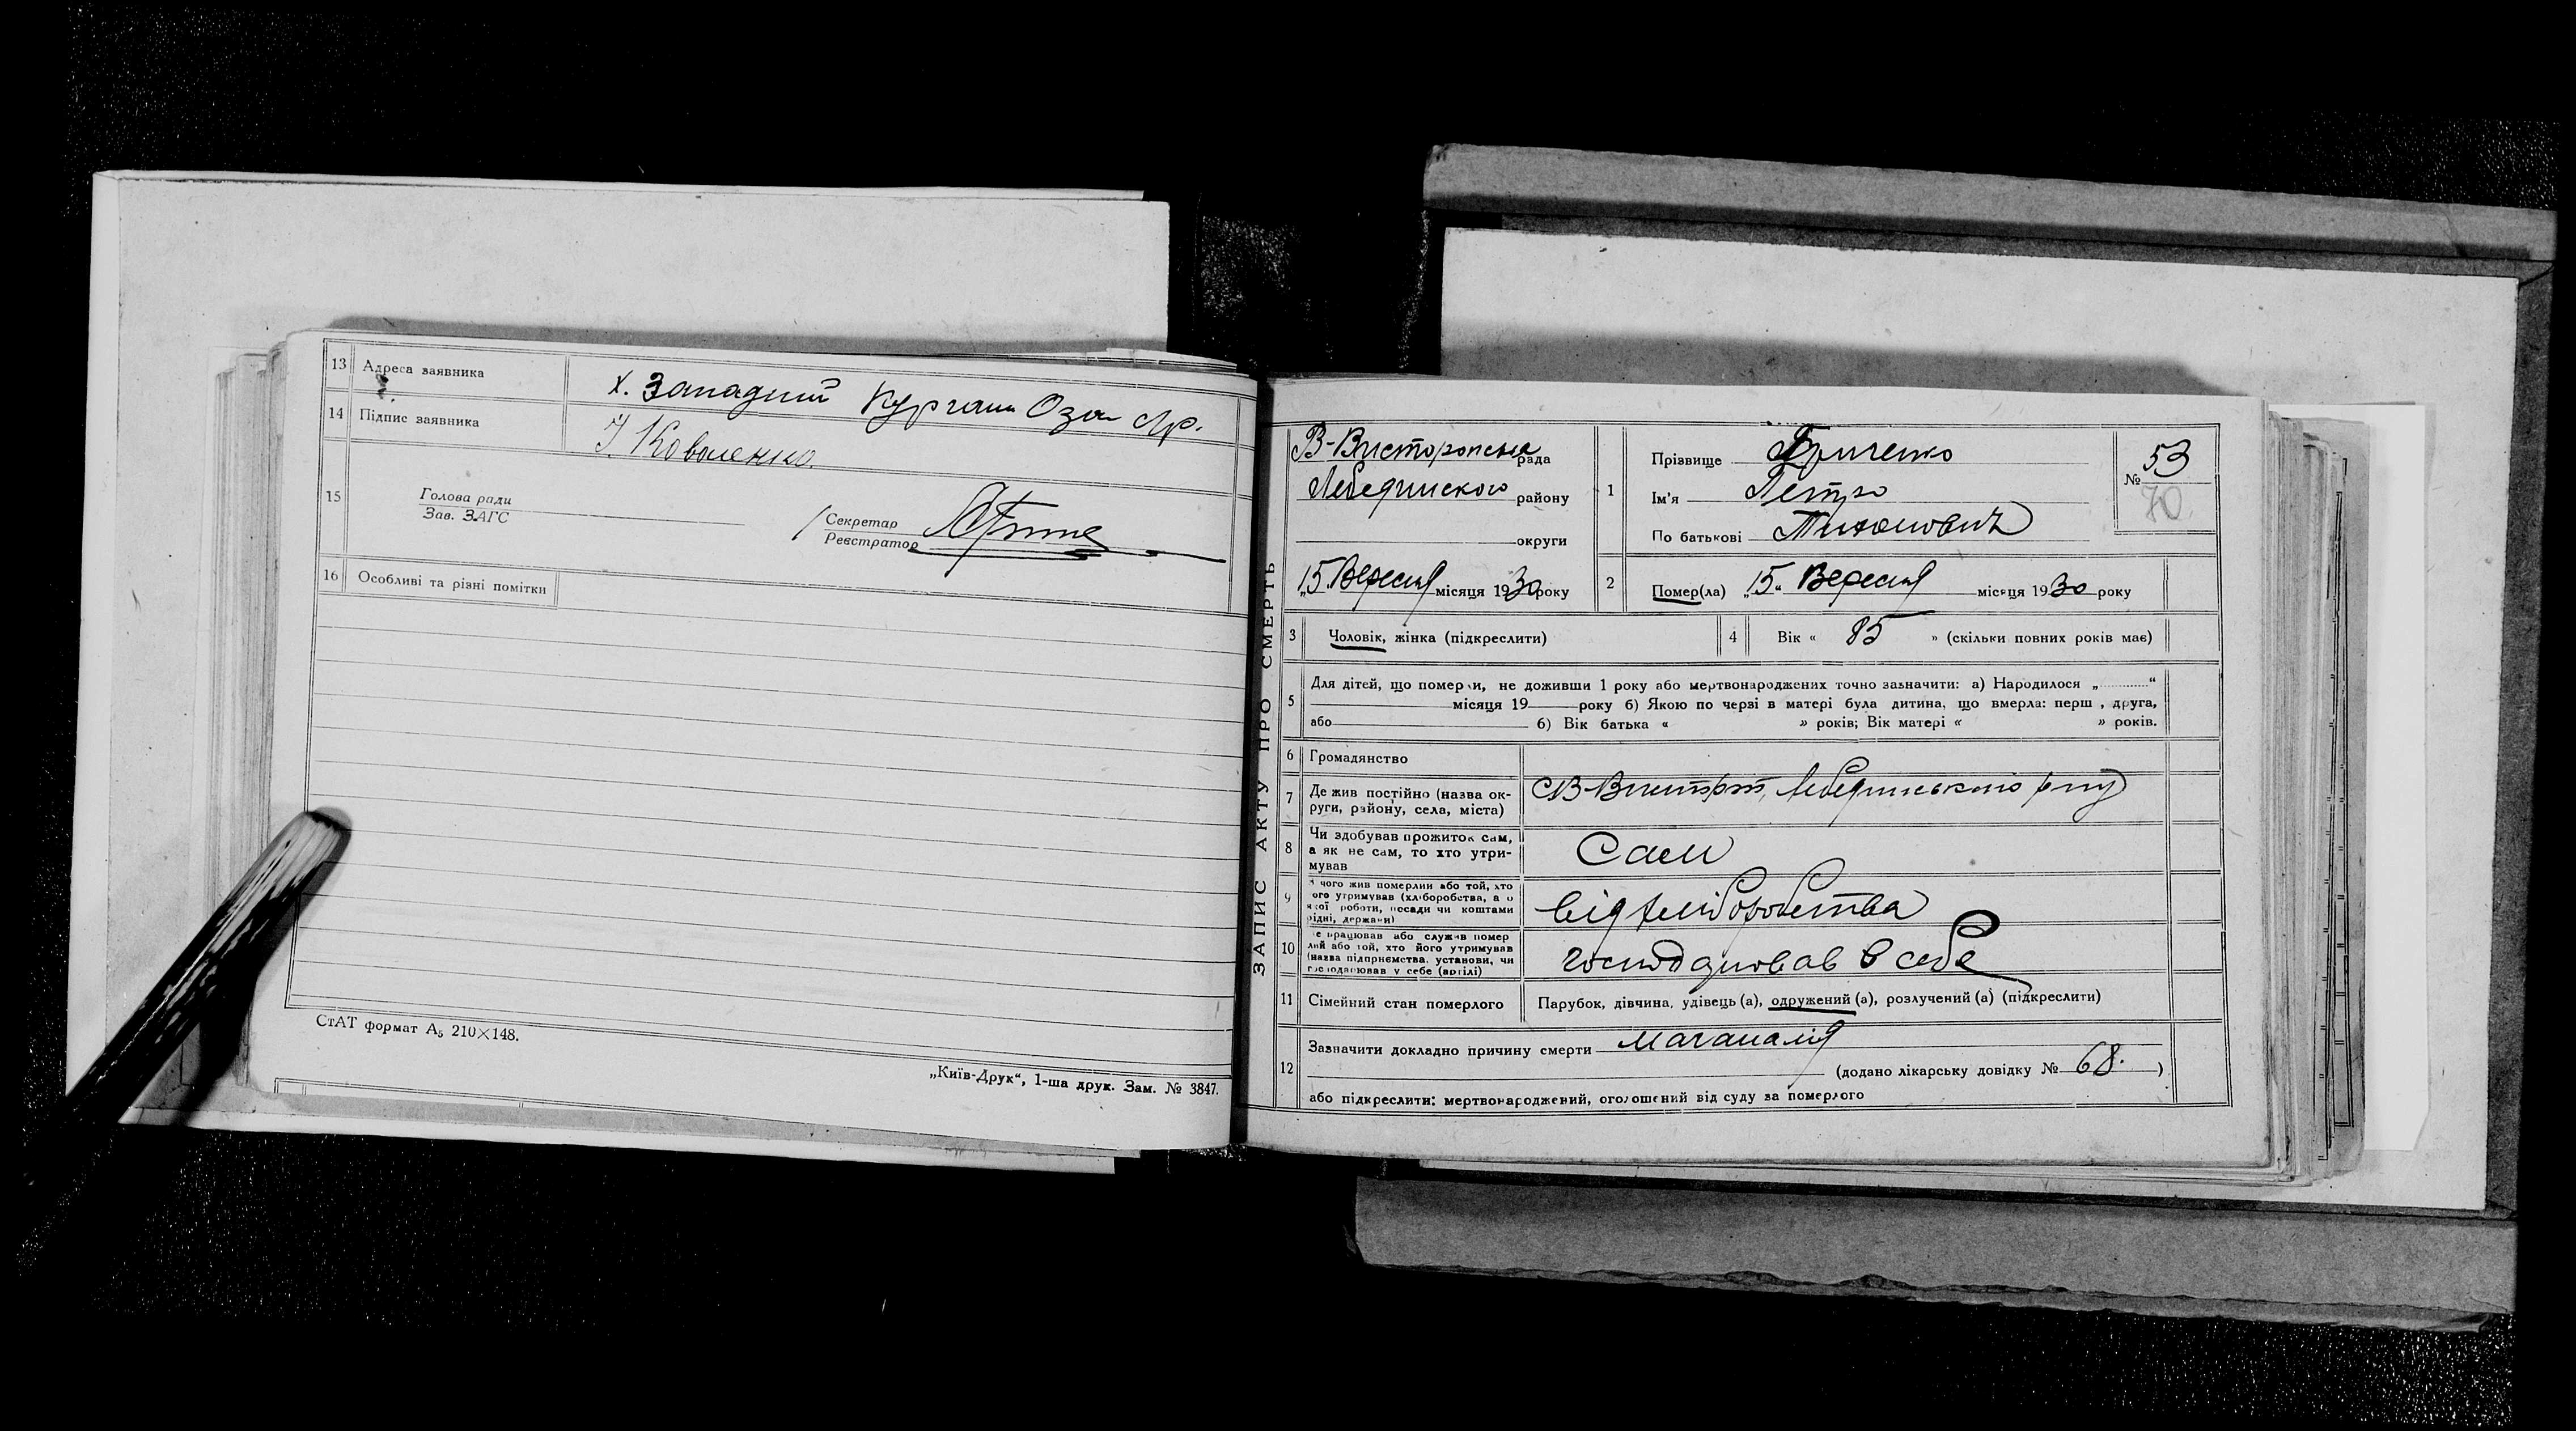 13 Адреса заявника х. Западний Курган Оза Лр.
14 Підпис заявника І. Коваленко
15 Голова ради
Зав. ЗАГС
Секретар
Реєстратор
16 Особливі та різні помітки
СтАТ формат А₅ 210×148.
„Київ-Друк“, 1-ша друк. Зам. № 3847.
ЗАПИС АКТУ ПРО СМЕРТЬ
В-Висторопська рада
Лебединского району
округи
„15 Вересня місяця 1930 року
1 Прізвище Гриченко
Ім'я Петро
По батькові Тихонович
№ 53
70.
2 Помер(ла) „15“ Вересня місяця 1930 року
3 Чоловік, жінка (підкреслити)
4 Вік « 85 » (скільки повних років має)
5 Для дітей, що померли, не доживши 1 року або мертвонароджених точно зазначити: а) Народилося „ “
місяця 19 року б) Якою по черзі в матері була дитина, що вмерла: перш , друга,
або б) Вік батька « » років; Вік матері « » років.
6 Громадянство
7 Де жив постійно (назва ок-
руги, району, села, міста)
Лебединського р-ну
8 Чи здобував прожиток сам,
а як не сам, то хто утри-
мував
Сам
9 З чого жив померлий або той, хто
його утримував (хліборобства, а о
якої роботи, посади чи коштами
рідні, держави)
від хліборобства
10 Де працював або служив помер
лий або той, хто його утримував
(назва підприємства, установи, чи
господарював у себе (артілі)
господарював в себе
11 Сімейний стан померлого Парубок, дівчина, удівець (а), одружений (а), розлучений (а) (підкреслити)
12 Зазначити докладно причину смерти
(додано лікарську довідку № 68. )
або підкреслити: мертвонароджений, оголошений від суду за померлого